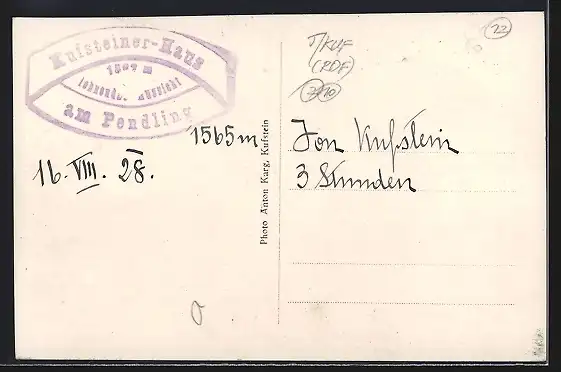 Kufsteiner-Haus
1564 m
lohnendste Aussicht
am Pendling
1565 m
16. VIII. 28.
Photo Anton Karg, Kufstein
T/KUF
(PDF)
22
Von Kufstein
3 Stunden